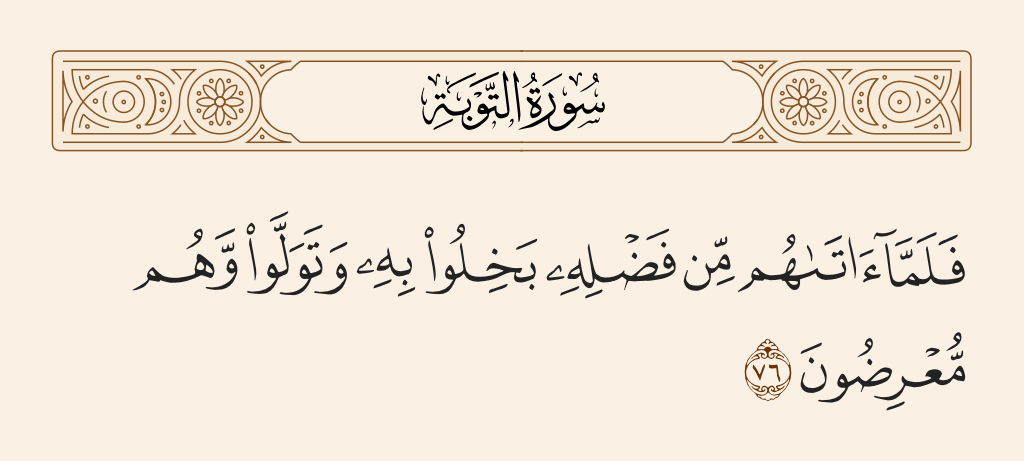 سُورَةُ التَّوۡبَةِ
فَلَمَّآ ءَاتَىٰهُم مِّن فَضۡلِهِۦ بَخِلُواْ بِهِۦ وَتَوَلَّواْ وَّهُم
مُّعۡرِضُونَ ٧٦